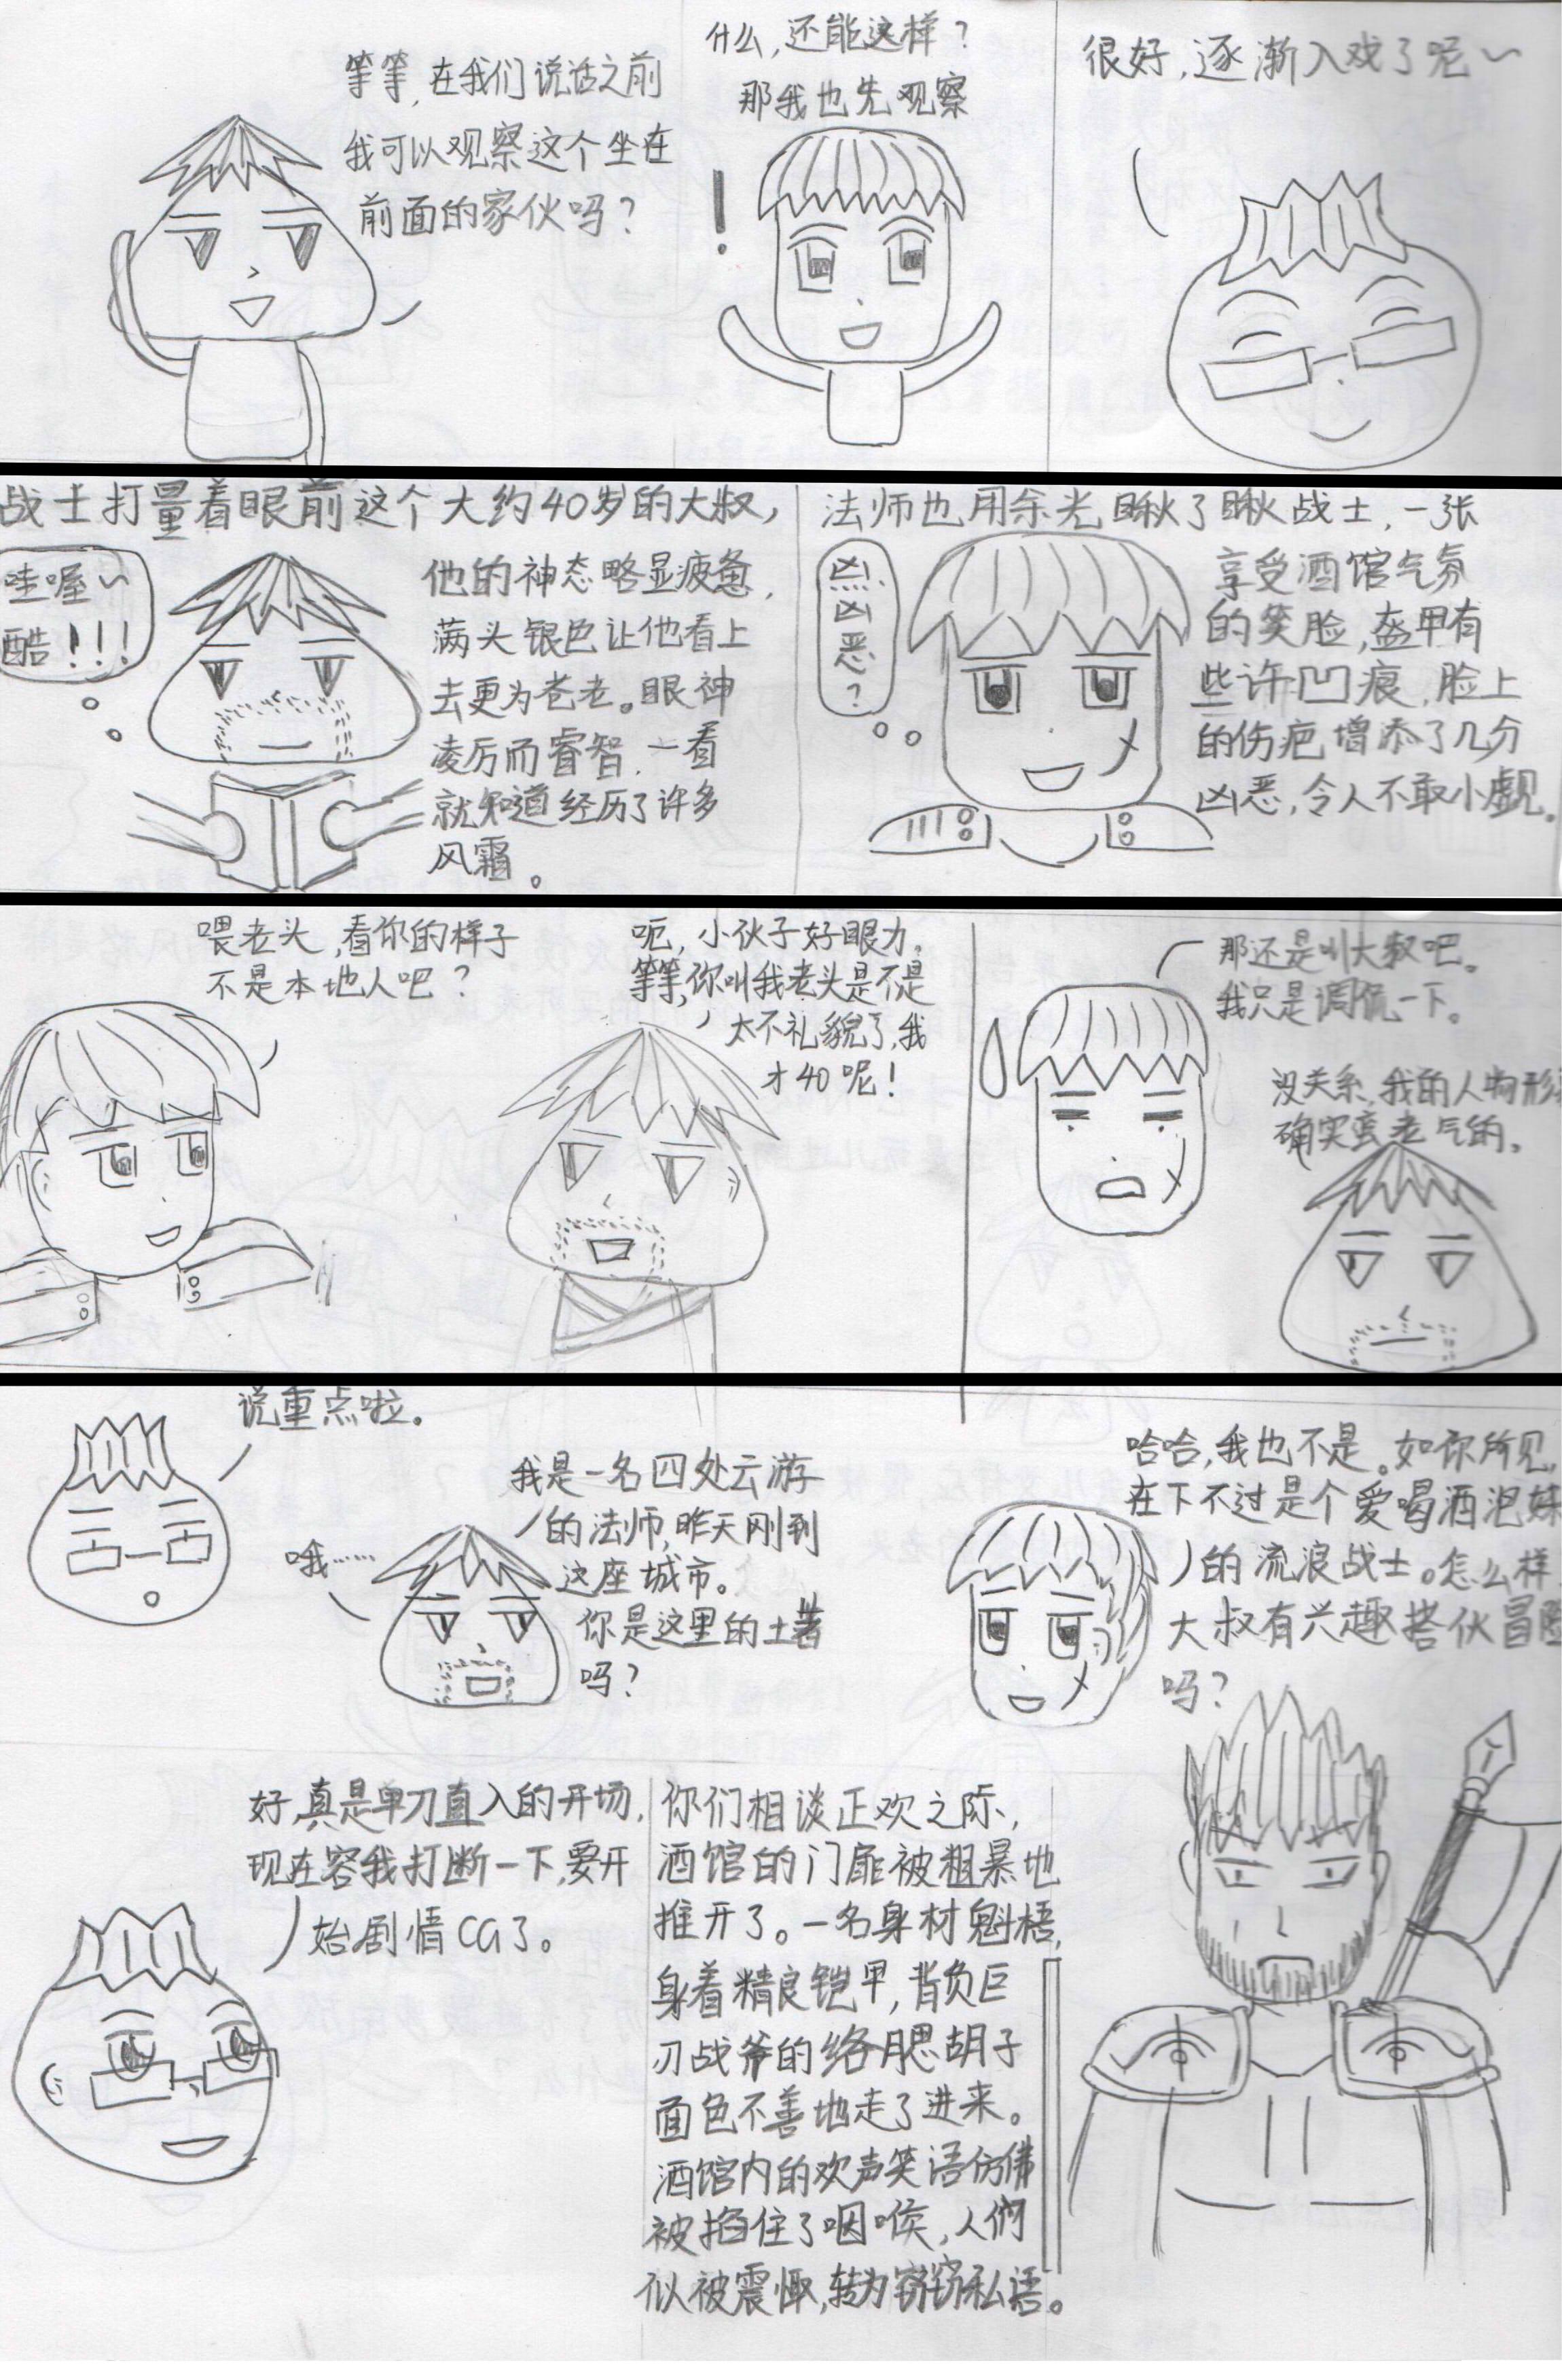 等等,在我们说话之前
我可以观察这个坐在
前面的家伙吗?
什么,还能这样?
那我也先观察
!
很好,逐渐入戏了呢~
战士打量着眼前这个大约40岁的大叔,
哇喔~
酷!!!
他的神态略显疲惫,
满头银色让他看上
去更为苍老。眼神
凌厉而睿智,一看
就知道经历了许多
风霜。
法师也用余光瞅了瞅战士,一张
凶凶恶?
享受酒馆气氛
的笑脸,盔甲有
些许凹痕,脸上
的伤疤增添了几分
凶恶,令人不敢小觑。
喂老头,看你的样子
不是本地人吧?
呃,小伙子好眼力。
等等,你叫我老头是不是
太不礼貌了,我
才40呢!
那还是叫大叔吧。
我只是调侃一下。
没关系,我的人物形
确实蛮老气的。
说重点啦。
哦……
我是一名四处云游
的法师,昨天刚到
这座城市。
你是这里的土著
吗?
哈哈,我也不是。如你所见,
在下不过是个爱喝酒泡妹
的流浪战士。怎么样,
大叔有兴趣搭伙冒险
吗?
好,真是单刀直入的开场,
现在容我打断一下,要开
始剧情CG了。
你们相谈正欢之际、
酒馆的门扉被粗暴地
推开了。一名身材魁梧,
身着精良铠甲,背负巨
刃战斧的络腮胡子
面色不善地走了进来。
酒馆内的欢声笑语仿佛
被掐住了咽喉,人们
似被震慑,转为窃窃私语。